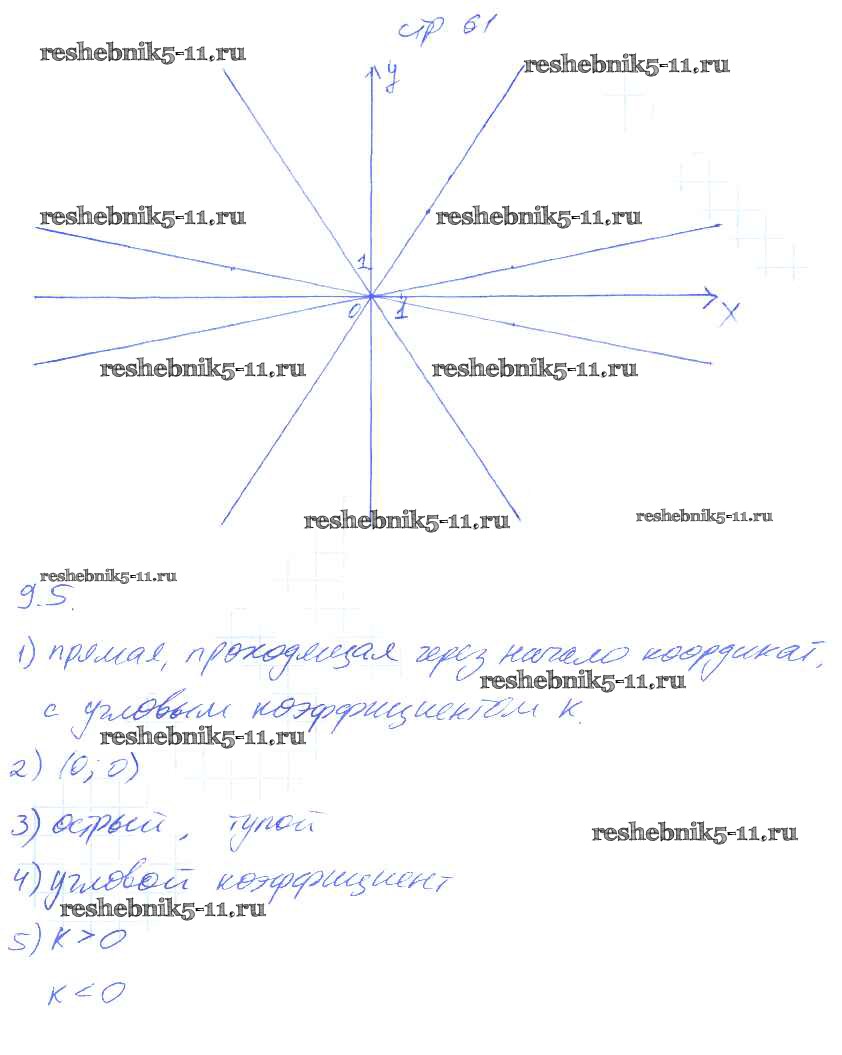 стр 61
reshebnik5-11.ru
reshebnik5-11.ru
y
reshebnik5-11.ru
reshebnik5-11.ru
1
0
1
x
reshebnik5-11.ru
reshebnik5-11.ru
reshebnik5-11.ru
reshebnik5-11.ru
reshebnik5-11.ru
9.5.
1) прямая, проходящая через начало координат,
reshebnik5-11.ru
с угловым коэффициентом к.
reshebnik5-11.ru
2) (0; 0)
3) острый, тупой
reshebnik5-11.ru
4) угловой коэффициент
reshebnik5-11.ru
5) к > 0
к < 0